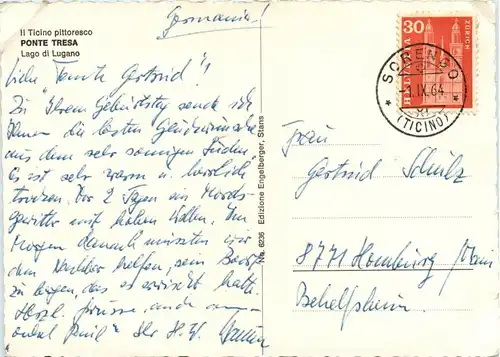 Il Ticino pittoresco
PONTE TRESA
Lago di Lugano
Germania!
Liebe Tante Gertrud!
Zu Ihrem Geburtstag sende ich
Ihnen die besten Glückwünsche
aus dem sehr sonnigen Süden.
Es ist sehr warm u. herrlich
trocken. Vor 2 Tagen ein Mords-
gewitter mit hohen Wellen. Am
Morgen danach mussten wir
dem Nachbar helfen, sein Boot
zu bergen, das es erwischt hatte.
Herzl. Grüsse, auch an
onkel Ihr H.W.
No. 6236 Edizione Engelberger, Stans
30
HELVETIA
ZÜRICH
SORENGO
IX.64
(TICINO)
Frau
Gertrud Schulz
8771 Homburg/Main